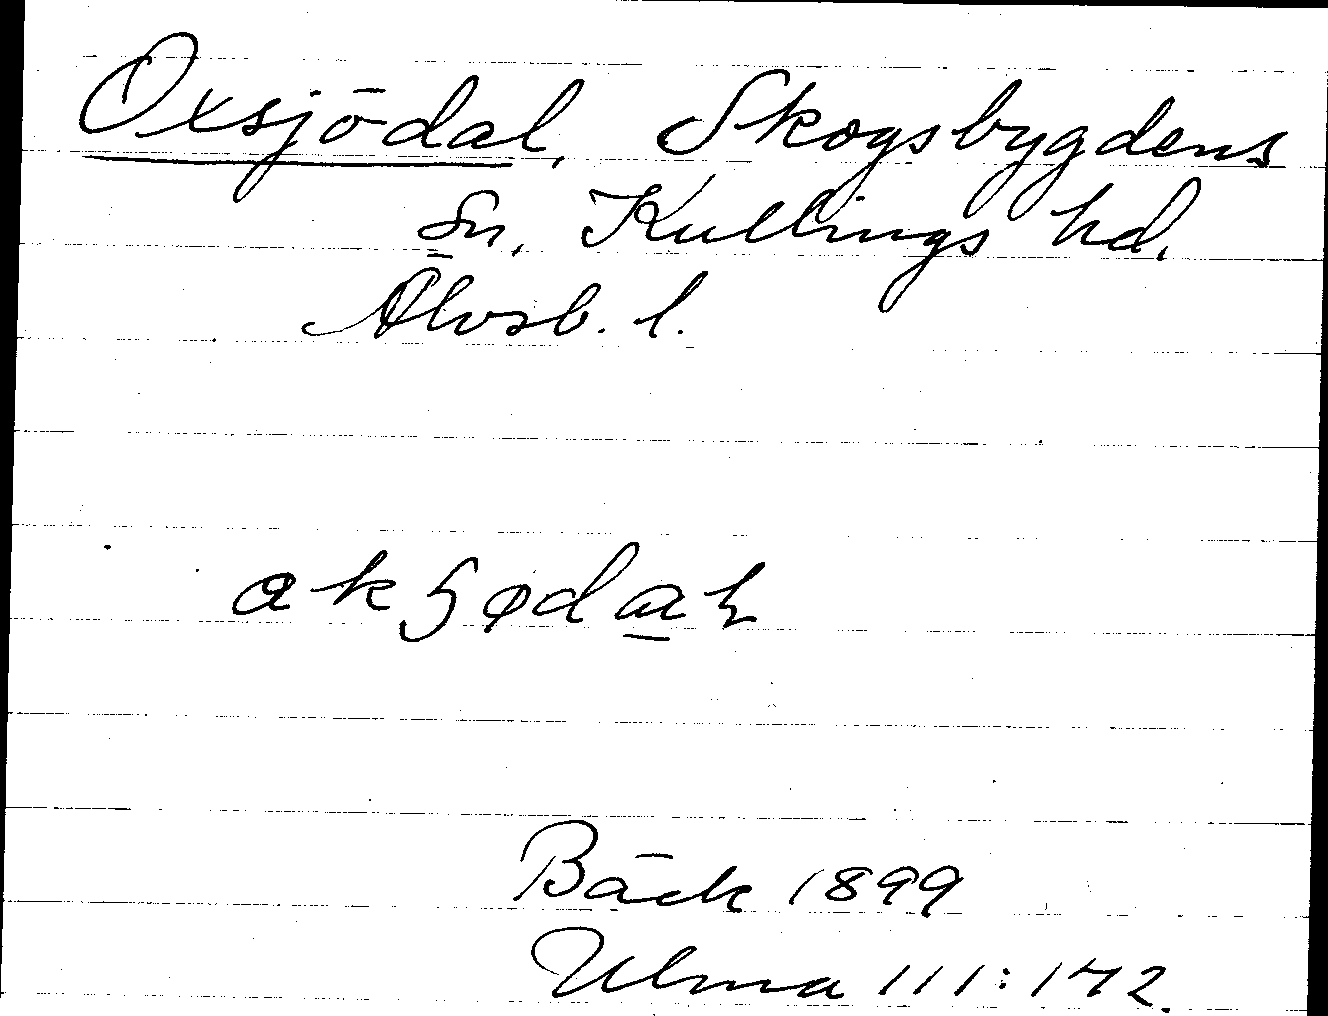 Oxsjödal, Skogsbygdens
sn, Kullings hd.
Älvsb. l.
Bäck 1899
Ulma 111:172.